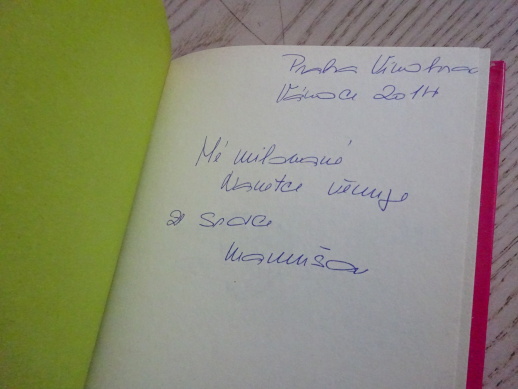 Praha Vinohrady
Vánoce 2014
Mé milované
Danetce věnuje
ze srdce
Mamuška